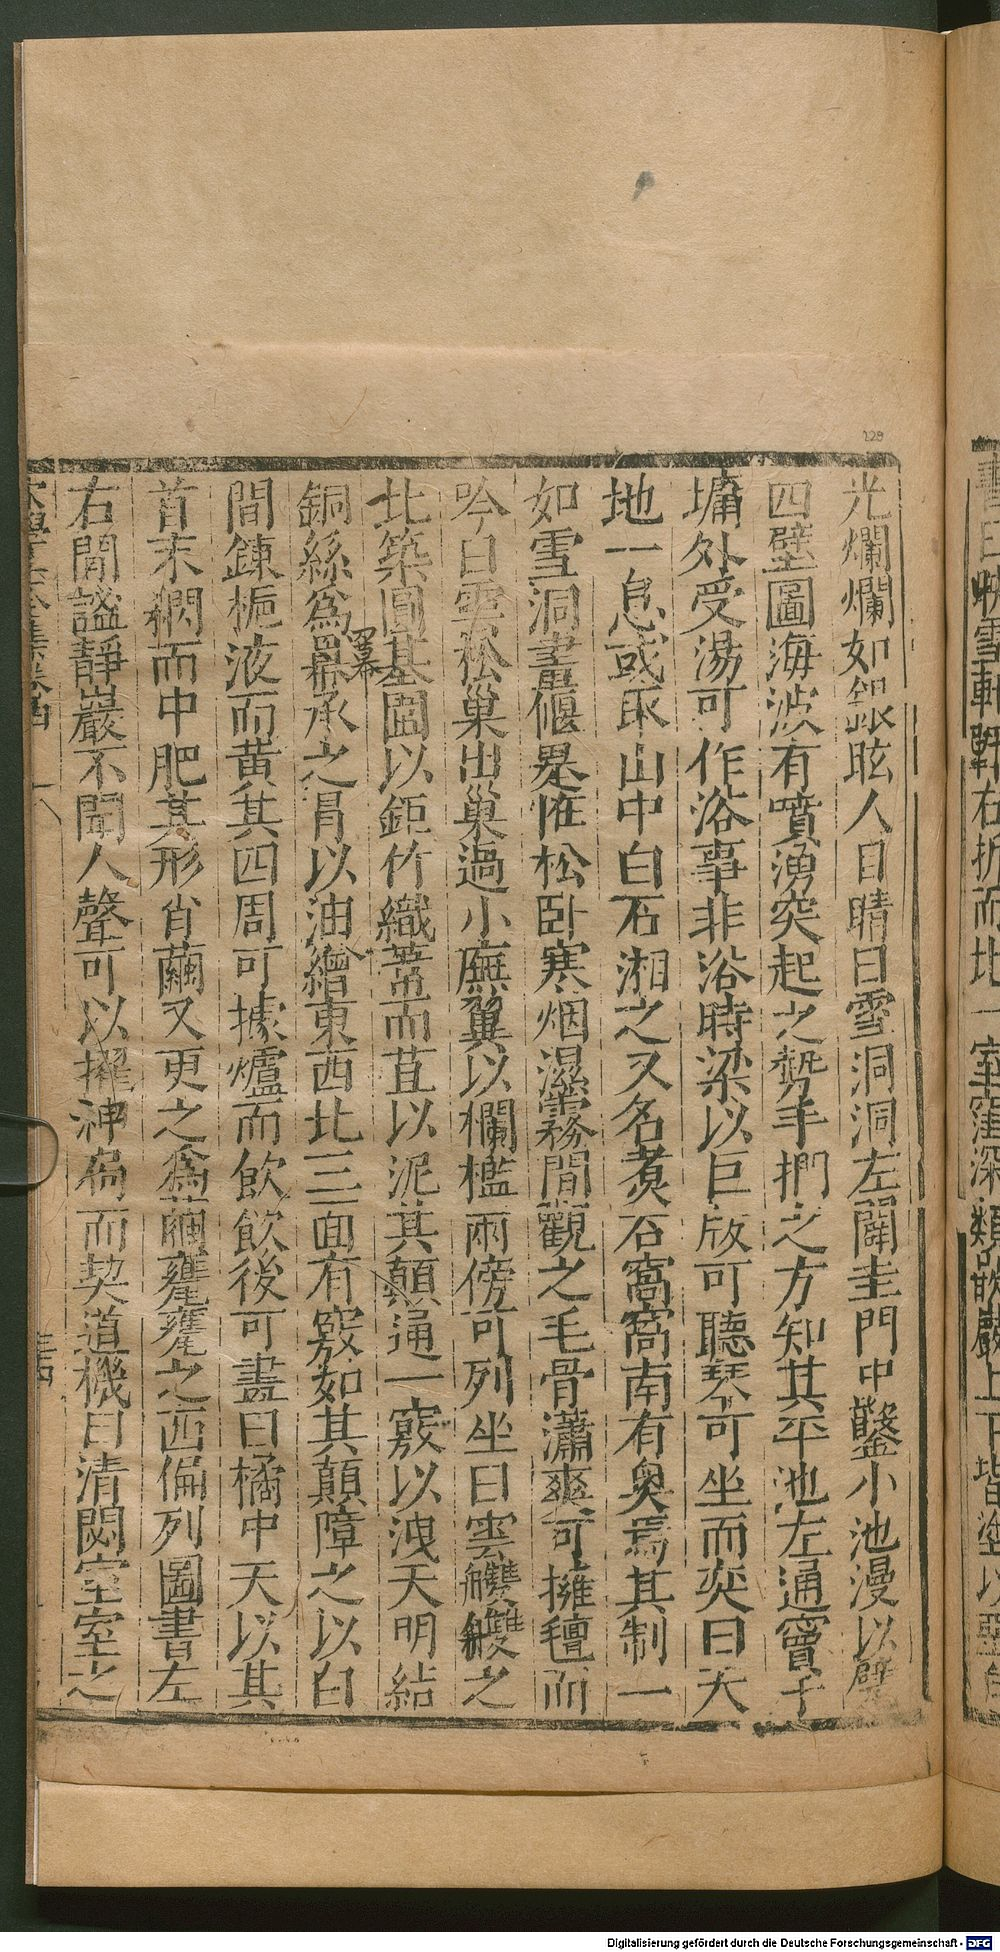 書曰映雪軒軒右折而北一室窪深類嵌巖上下皆塗以堊白
光爛爛如銀眩人目睛曰雪洞洞左闢圭門中鑿小池漫以甓
四壁圖海波有噴湧突起之勢手捫之方知其平池左通竇于
墉外受湯可作浴事非浴時梁以巨版可聽琴可坐而奕曰天
地一息或取山中白石湘之又名煮石窩窩南有奧焉其制一
如雪洞晝偃是惟松臥寒烟濕霧間觀之毛骨瀟爽可擁氊而
吟曰雲松巢出巢過小廡翼以欄檻兩傍可列坐曰雲艭艭之
北築圓基圍以鉅竹織葦而苴以泥其顛通一竅以洩天明結
銅絲為羃承之冐以油繒東西北三面有竅如其顛障之以白
羃
間鍊梔液而黃其四周可據爐而飲飲後可畫曰橘中天以其
首末網而中肥其形肖繭又更之為繭甕甕之西偏列圖書左
右閒謐靜巖不聞人聲可以擢神扃而契道機曰清閟室室之
229
Digitalisierung gefördert durch die Deutsche Forschungsgemeinschaft - DFG